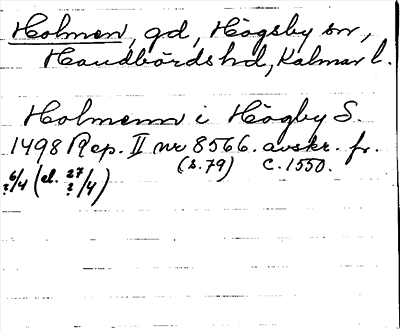 Holmen, gd, Högsby sn,
Handbörds hd, Kalmar l.
Holmenn i Högby S.
1498 Rep. II nr 8566. avskr. fr.
6/4 (el. 27/4) (s. 79) c. 1550.
? ?